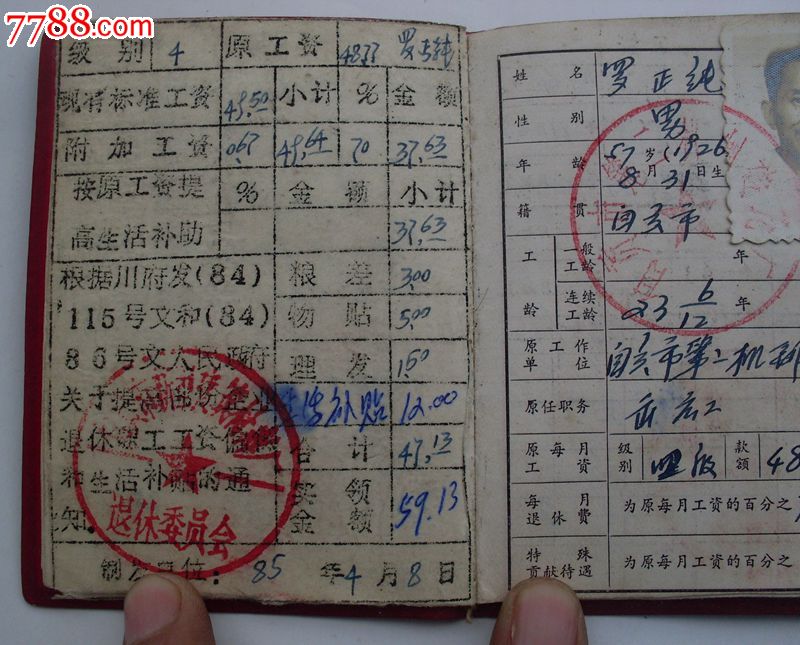 7788.com
级别 4 原工资 48.33 罗正纯
现有标准工资 49.50 小计 % 金额
附加工资 0.63 70 37.63
按原工资提 % 金额 小计
高生活补助 37.63
根据川府发(84) 粮差 3.00
115号文和(84) 物贴 5.00
86号文人民政府 理发 1.50
关于提高 企业 生活补贴 12.00
退休职工工资 合计 47.13
和生活补贴的通 实领
知 金额 59.13
退休委员会
制发单位: 85年4月8日
姓名 罗正纯
性别 男
年龄 57岁(1926
8月31日生
籍贯 自贡市
工龄 一般工龄 年
连续工龄 23 6/12 年
原工作单位 自贡市第二机
原任职务
原每月工资 级别 四级 款额 48
每月退休费 为原每月工资的百分之
特殊贡献待遇 为原每月工资的百分之